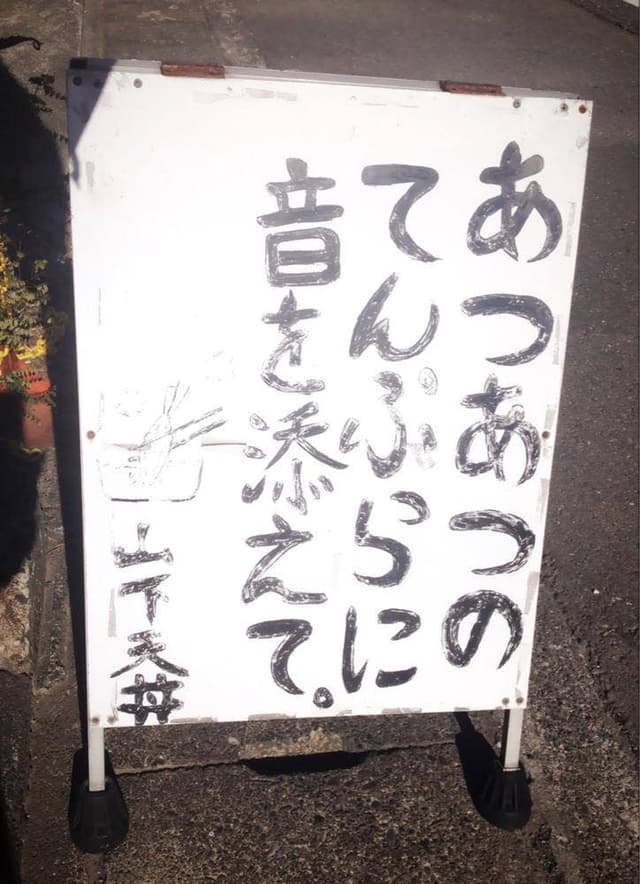 あつあつの
てんぷらに
音を添えて。
山下天丼